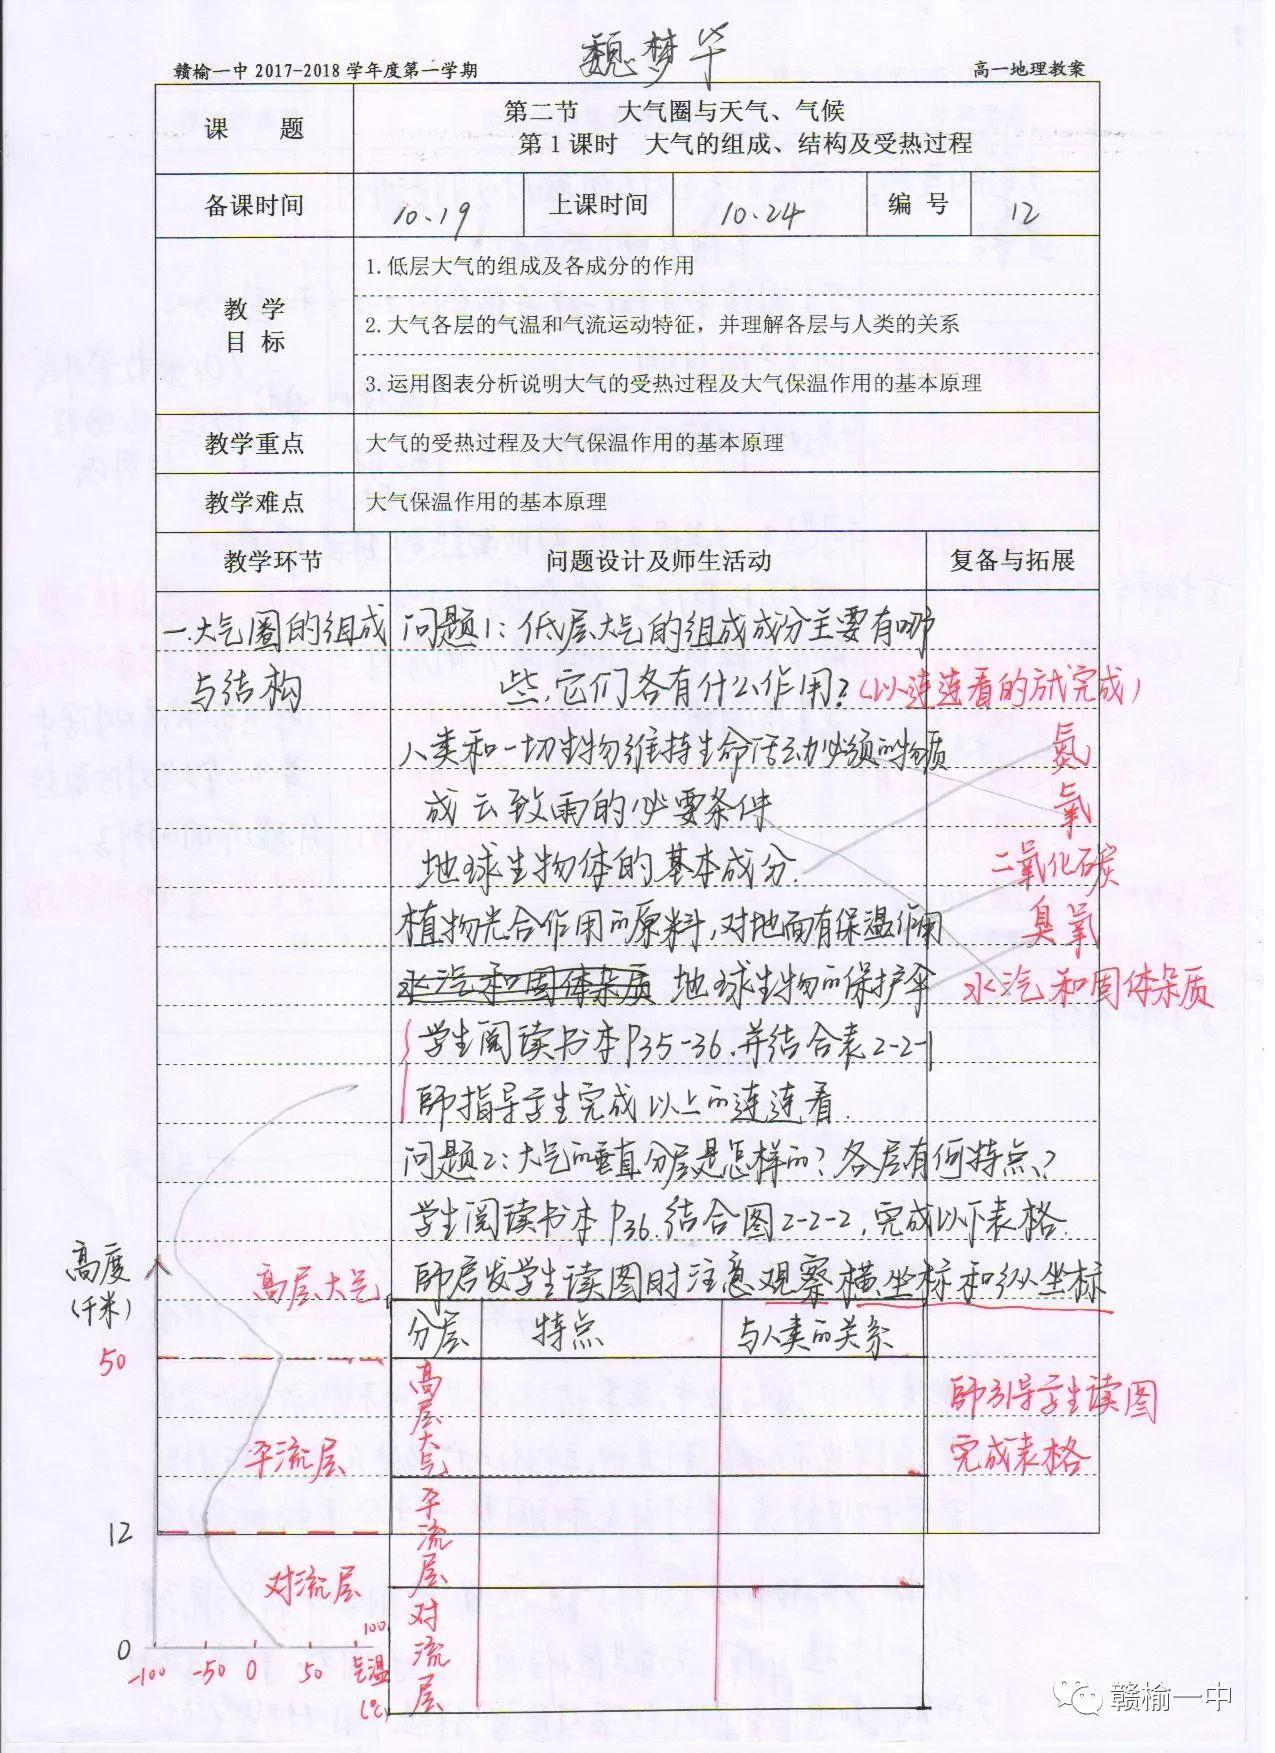 魏梦华
赣榆一中 2017-2018 学年度第一学期
高一地理教案
课 题
第二节 大气圈与天气、气候
第 1 课时 大气的组成、结构及受热过程
备课时间 10.19 上课时间 10.24 编 号 12
教 学
目 标
1. 低层大气的组成及各成分的作用
2. 大气各层的气温和气流运动特征，并理解各层与人类的关系
3. 运用图表分析说明大气的受热过程及大气保温作用的基本原理
教学重点 大气的受热过程及大气保温作用的基本原理
教学难点 大气保温作用的基本原理
教学环节 问题设计及师生活动 复备与拓展
一.大气圈的组成
与结构
问题1：低层大气的组成成分主要有哪
些，它们各有什么作用？（以连连看的方式完成）
人类和一切生物维持生命活动必须的物质 氮
成云致雨的必要条件 氧
地球生物体的基本成分. 二氧化碳
植物光合作用的原料，对地面有保温作用 臭氧
水汽和固体杂质 地球生物的保护伞 水汽和固体杂质
学生阅读书本P35-36.并结合表2-2-1
师指导学生完成以上的连连看.
问题2：大气的垂直分层是怎样的？各层有何特点？
学生阅读书本P36.结合图2-2-2，完成以下表格.
师启发学生读图时注意观察横坐标和纵坐标
高度
(千米)
高层大气
50
平流层
12
对流层
0
100
-100 -50 0 50 气温
(℃)
分层 特点 与人类的关系
高层大气
平流层
对流层
师引导学生读图
完成表格
赣榆一中